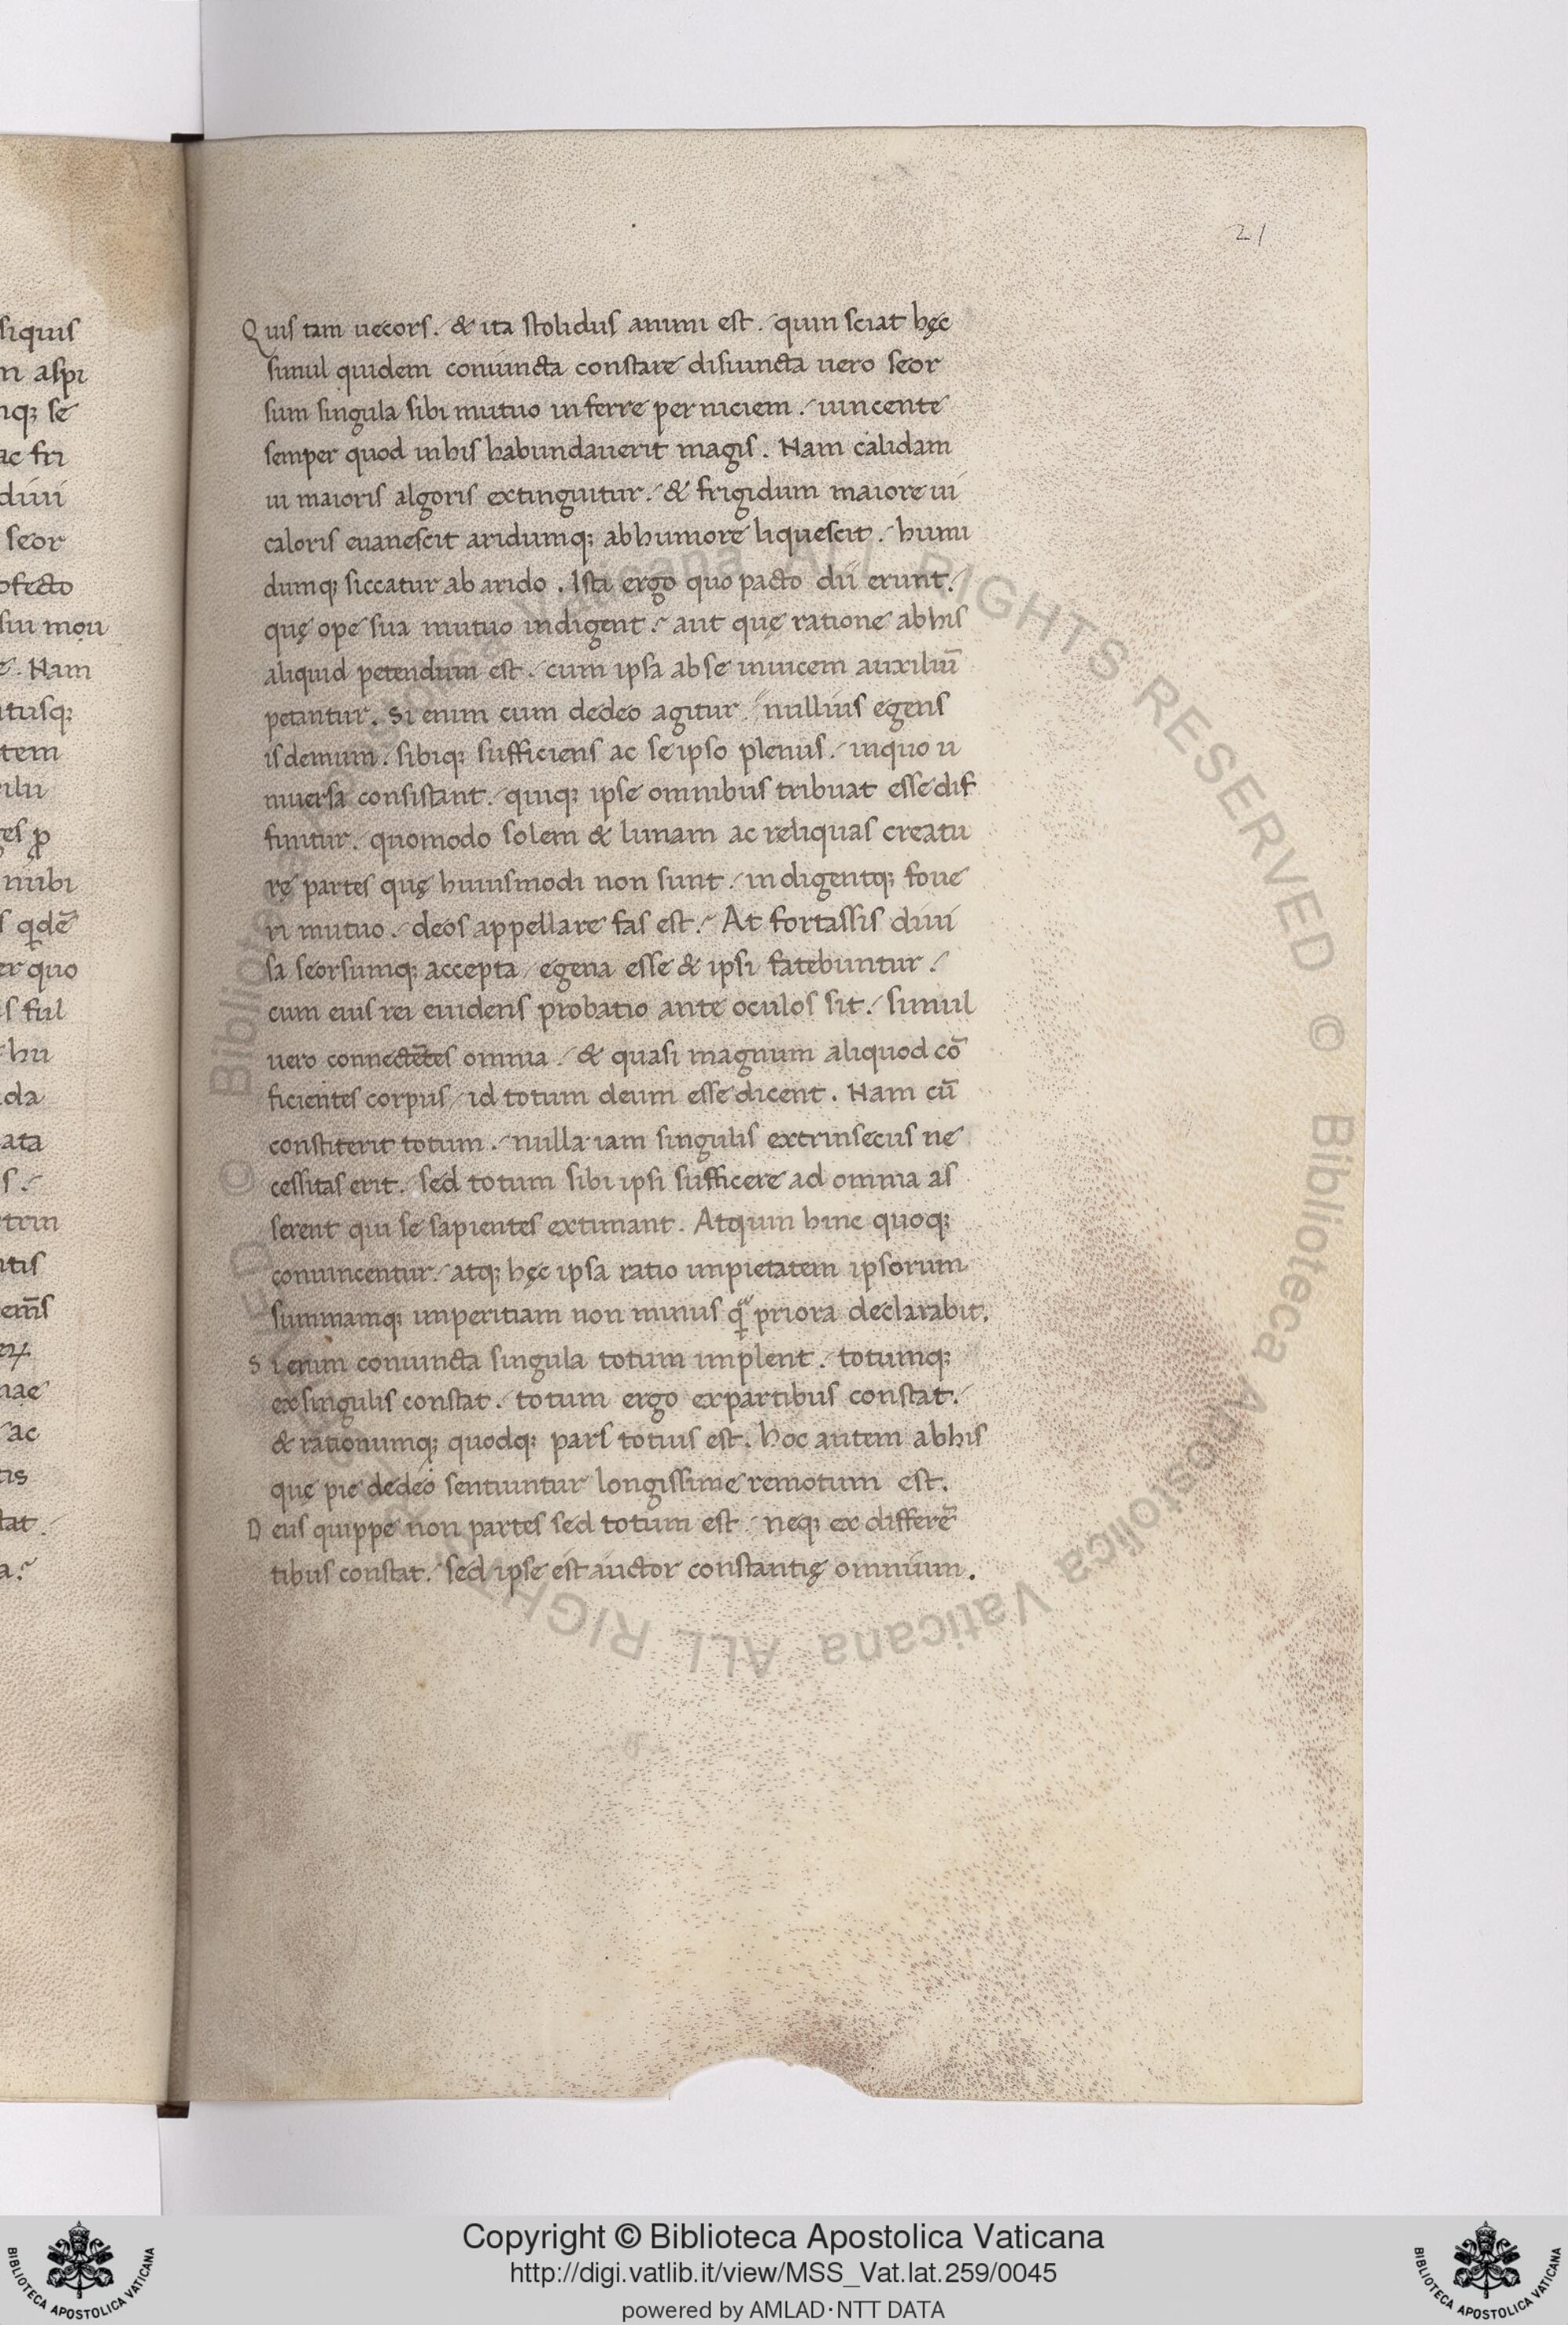 21
Quis tam uecors. & ita stolidus animi est. quin sciat hęc
simul quidem coniuncta constare disiuncta uero seor
sum singula sibi mutuo inferre perniciem. uincente
semper quod in his habundauerit magis. Nam calidam
ui maioris algoris extinguitur. & frigidum maiore ui
caloris euanescit aridumq; ab humore liquescit. humi
dumq; siccatur ab arido. Isti ergo quo pacto dii erunt.
quę ope sua mutuo indigent. aut quę ratione ab his
aliquid petendum est. cum ipsa ab se inuicem auxiliū
petantur. Si enim cum de deo agitur. nullius egens
is demum. sibiq; sufficiens ac se ipso plenus. in quo u
niuersa consistant. quiq; ipse omnibus tribuat esse dif
finitur. quomodo solem & lunam ac reliquas creatu
rę partes quę huiusmodi non sunt. indigentq; foue
ri mutuo. deos appellare fas est. At fortassis diui
sa seorsumq; accepta egena esse & ipsi fatebuntur.
cum eius rei euidens probatio ante oculos sit. simul
uero connectētes omnia. & quasi magnum aliquod cō
ficientes corpus id totum deum esse dicent. Nam cū
constiterit totum. nulla iam singulis extrinsecus ne
cessitas erit. sed totum sibi ipsi sufficere ad omnia as
serent qui se sapientes extimant. Atquin hinc quoq;
conuincentur. atq; hęc ipsa ratio impietatem ipsorum
summamq; imperitiam non minus priora declarabit.
Si enim coniuncta singula totum implent. totumq;
ex singulis constat. totum ergo ex partibus constat.
& rationumq; quodq; pars totius est. hoc autem ab his
quę pie de deo sentiuntur longissime remotum est.
Deus quippe non partes sed totum est neq; ex differē
tibus constat. sed ipse est auctor constantię omnium.
siquis
m aspi
nq; se
ac fri
diui
seor
ofecto
. Nam
tusq;
tem
nubi
er quo
s ful
hu
da
ata
trin
ac
tis
tat.
a.
© Biblioteca Apostolica Vaticana ALL RIGHTS RESERVED © Biblioteca Apostolica Vaticana ALL RIGHT
Copyright © Biblioteca Apostolica Vaticana
http://digi.vatlib.it/view/MSS_Vat.lat.259/0045
powered by AMLAD·NTT DATA
BIBLIOTECA APOSTOLICA VATICANA
BIBLIOTECA APOSTOLICA VATICANA